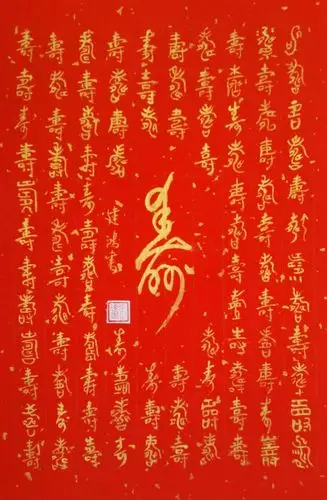 壽壽壽壽壽壽壽壽壽壽壽壽
壽壽壽壽壽壽壽壽壽壽壽壽
壽壽壽壽壽壽壽壽壽壽壽壽
壽壽壽壽
壽壽壽壽
壽壽壽
壽壽壽
壽壽壽
壽壽壽
壽
壽壽壽壽
壽壽壽壽
建鸿書
壽壽壽壽壽壽壽壽壽壽壽壽
壽壽壽壽壽壽壽壽壽壽壽壽
壽壽壽壽壽壽壽壽壽壽壽壽